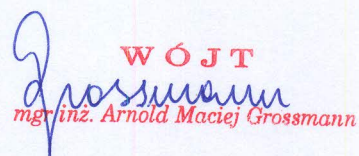 WÓJT
Grossmann
mgr inż. Arnold Maciej Grossmann